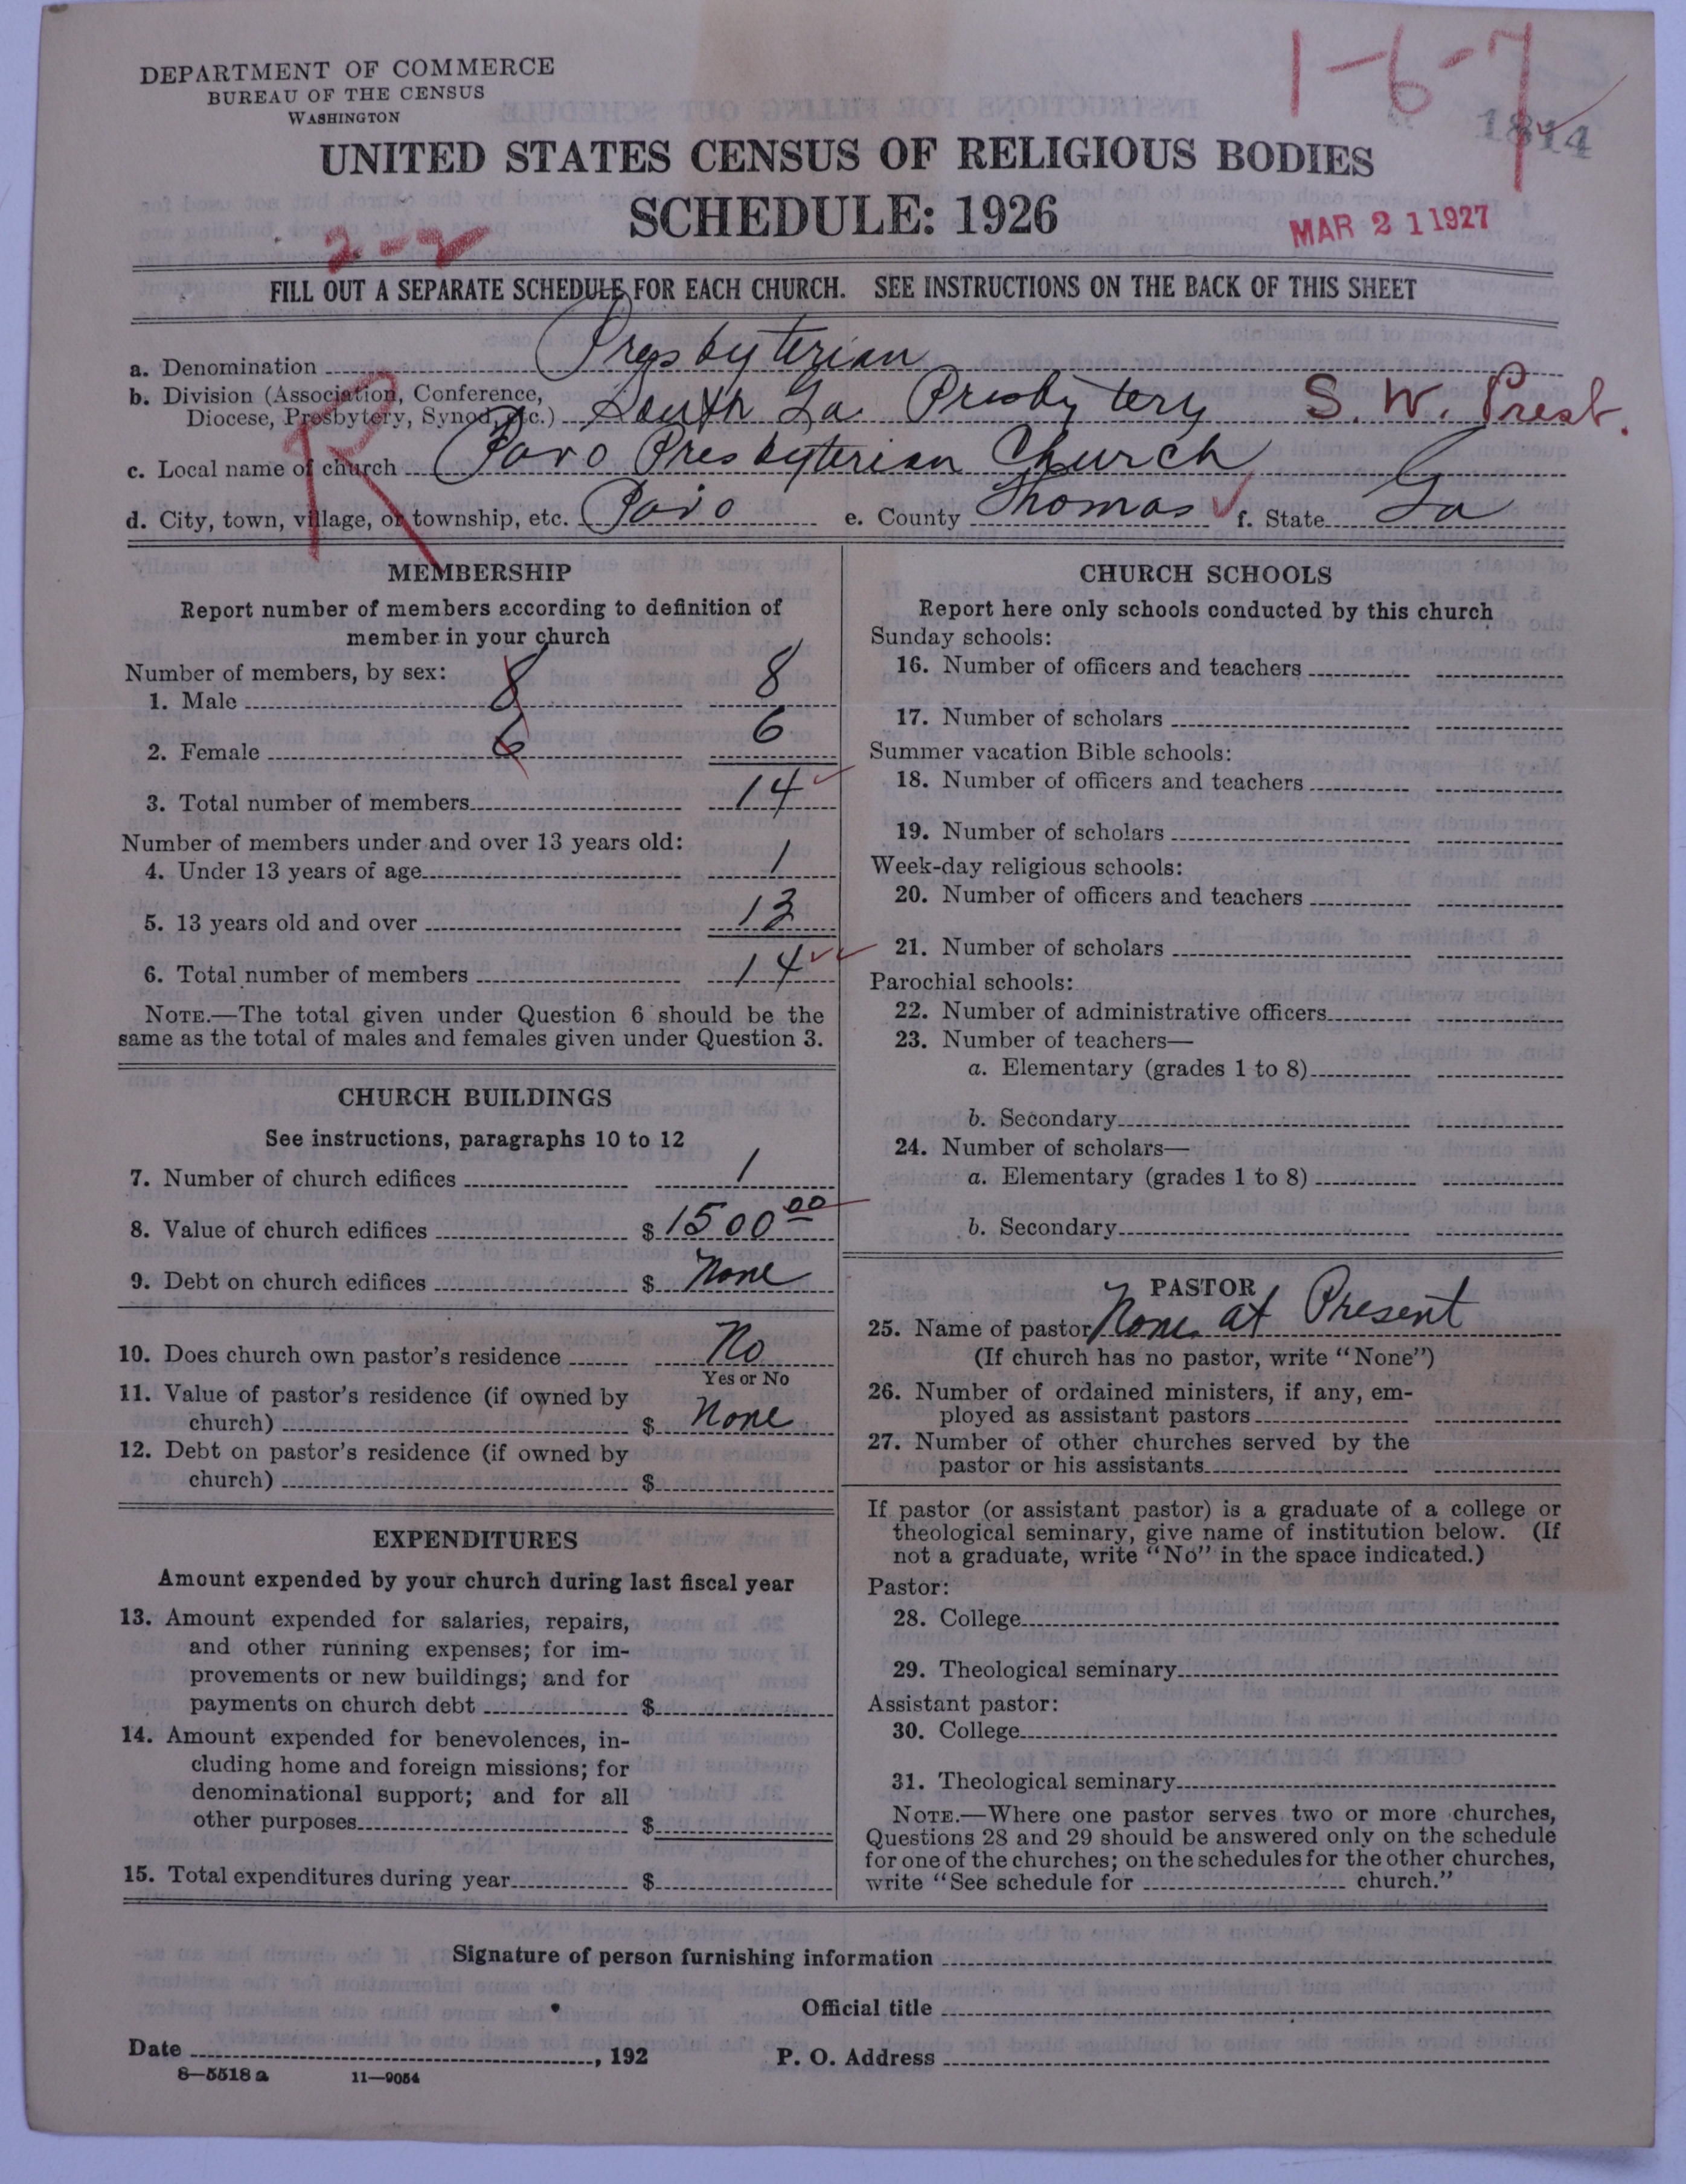 DEPARTMENT OF COMMERCE
BUREAU OF THE CENSUS
WASHINGTON
1-6-7
1814
UNITED STATES CENSUS OF RELIGIOUS BODIES
SCHEDULE: 1926
2-2
MAR 21 1927
FILL OUT A SEPARATE SCHEDULE FOR EACH CHURCH. SEE INSTRUCTIONS ON THE BACK OF THIS SHEET
a. Denomination Presbyterian
b. Division (Association, Conference, Diocese, Presbytery, Synod, etc.) South Ga Presbytery S. W. Presb.
c. Local name of church Pavo Presbyterian Church
d. City, town, village, or township, etc. Pavo e. County Thomas f. State Ga
R
MEMBERSHIP
Report number of members according to definition of
member in your church
Number of members, by sex:
1. Male 8 8
2. Female 6 6
3. Total number of members 14
Number of members under and over 13 years old:
4. Under 13 years of age 1
5. 13 years old and over 13
6. Total number of members 14
NOTE.—The total given under Question 6 should be the
same as the total of males and females given under Question 3.
CHURCH BUILDINGS
See instructions, paragraphs 10 to 12
7. Number of church edifices 1
8. Value of church edifices $ 1500 00
9. Debt on church edifices $ None
10. Does church own pastor's residence No
Yes or No
11. Value of pastor's residence (if owned by
church) $ None
12. Debt on pastor's residence (if owned by
church) $
EXPENDITURES
Amount expended by your church during last fiscal year
13. Amount expended for salaries, repairs,
and other running expenses; for im-
provements or new buildings; and for
payments on church debt $
14. Amount expended for benevolences, in-
cluding home and foreign missions; for
denominational support; and for all
other purposes $
15. Total expenditures during year $
CHURCH SCHOOLS
Report here only schools conducted by this church
Sunday schools:
16. Number of officers and teachers
17. Number of scholars
Summer vacation Bible schools:
18. Number of officers and teachers
19. Number of scholars
Week-day religious schools:
20. Number of officers and teachers
21. Number of scholars
Parochial schools:
22. Number of administrative officers
23. Number of teachers—
a. Elementary (grades 1 to 8)
b. Secondary
24. Number of scholars—
a. Elementary (grades 1 to 8)
b. Secondary
PASTOR
25. Name of pastor None at Present
(If church has no pastor, write "None")
26. Number of ordained ministers, if any, em-
ployed as assistant pastors
27. Number of other churches served by the
pastor or his assistants
If pastor (or assistant pastor) is a graduate of a college or
theological seminary, give name of institution below. (If
not a graduate, write "No" in the space indicated.)
Pastor:
28. College
29. Theological seminary
Assistant pastor:
30. College
31. Theological seminary
NOTE.—Where one pastor serves two or more churches,
Questions 28 and 29 should be answered only on the schedule
for one of the churches; on the schedules for the other churches,
write "See schedule for church."
Signature of person furnishing information
Official title
Date , 192 P. O. Address
8—5518 a 11—9054